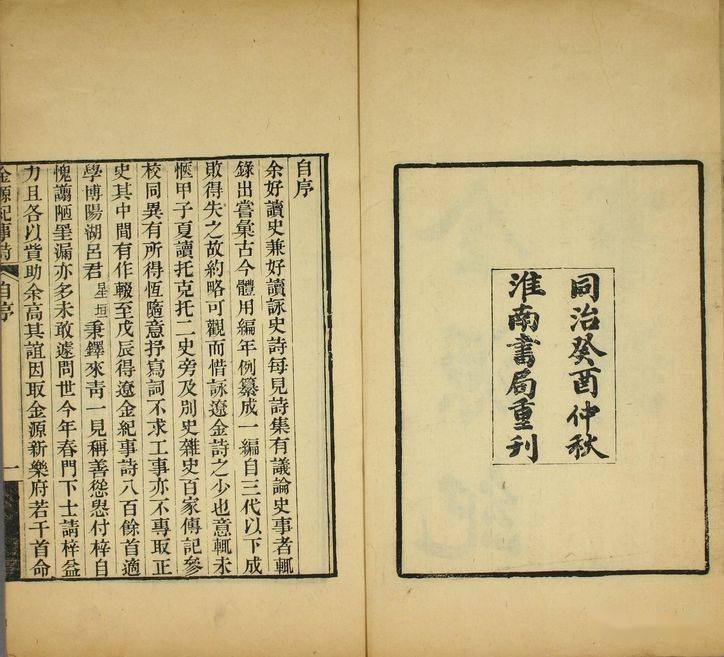 同治癸酉仲秋
淮南書局重刊
自序
余好讀史兼好讀詠史詩每見詩集有議論史事者輒
錄出嘗彙古今體用編年例纂成一編自三代以下成
敗得失之故約略可觀而惜詠遼金詩之少也意輒未
愜甲子夏讀托克托二史旁及別史雜史百家傳記參
校同異有所得恆隨意抒寫詞不求工事亦不專取正
史其中間有作輟至戊辰得遼金紀事詩八百餘首適
學博陽湖呂君星垣秉鐸來靑一見稱善慫恿付梓自
愧謭陋罣漏亦多未敢遽問世今年春門下士請梓益
力且各以貲助余高其誼因取金源新樂府若干首命
金源紀事詩 自序 一